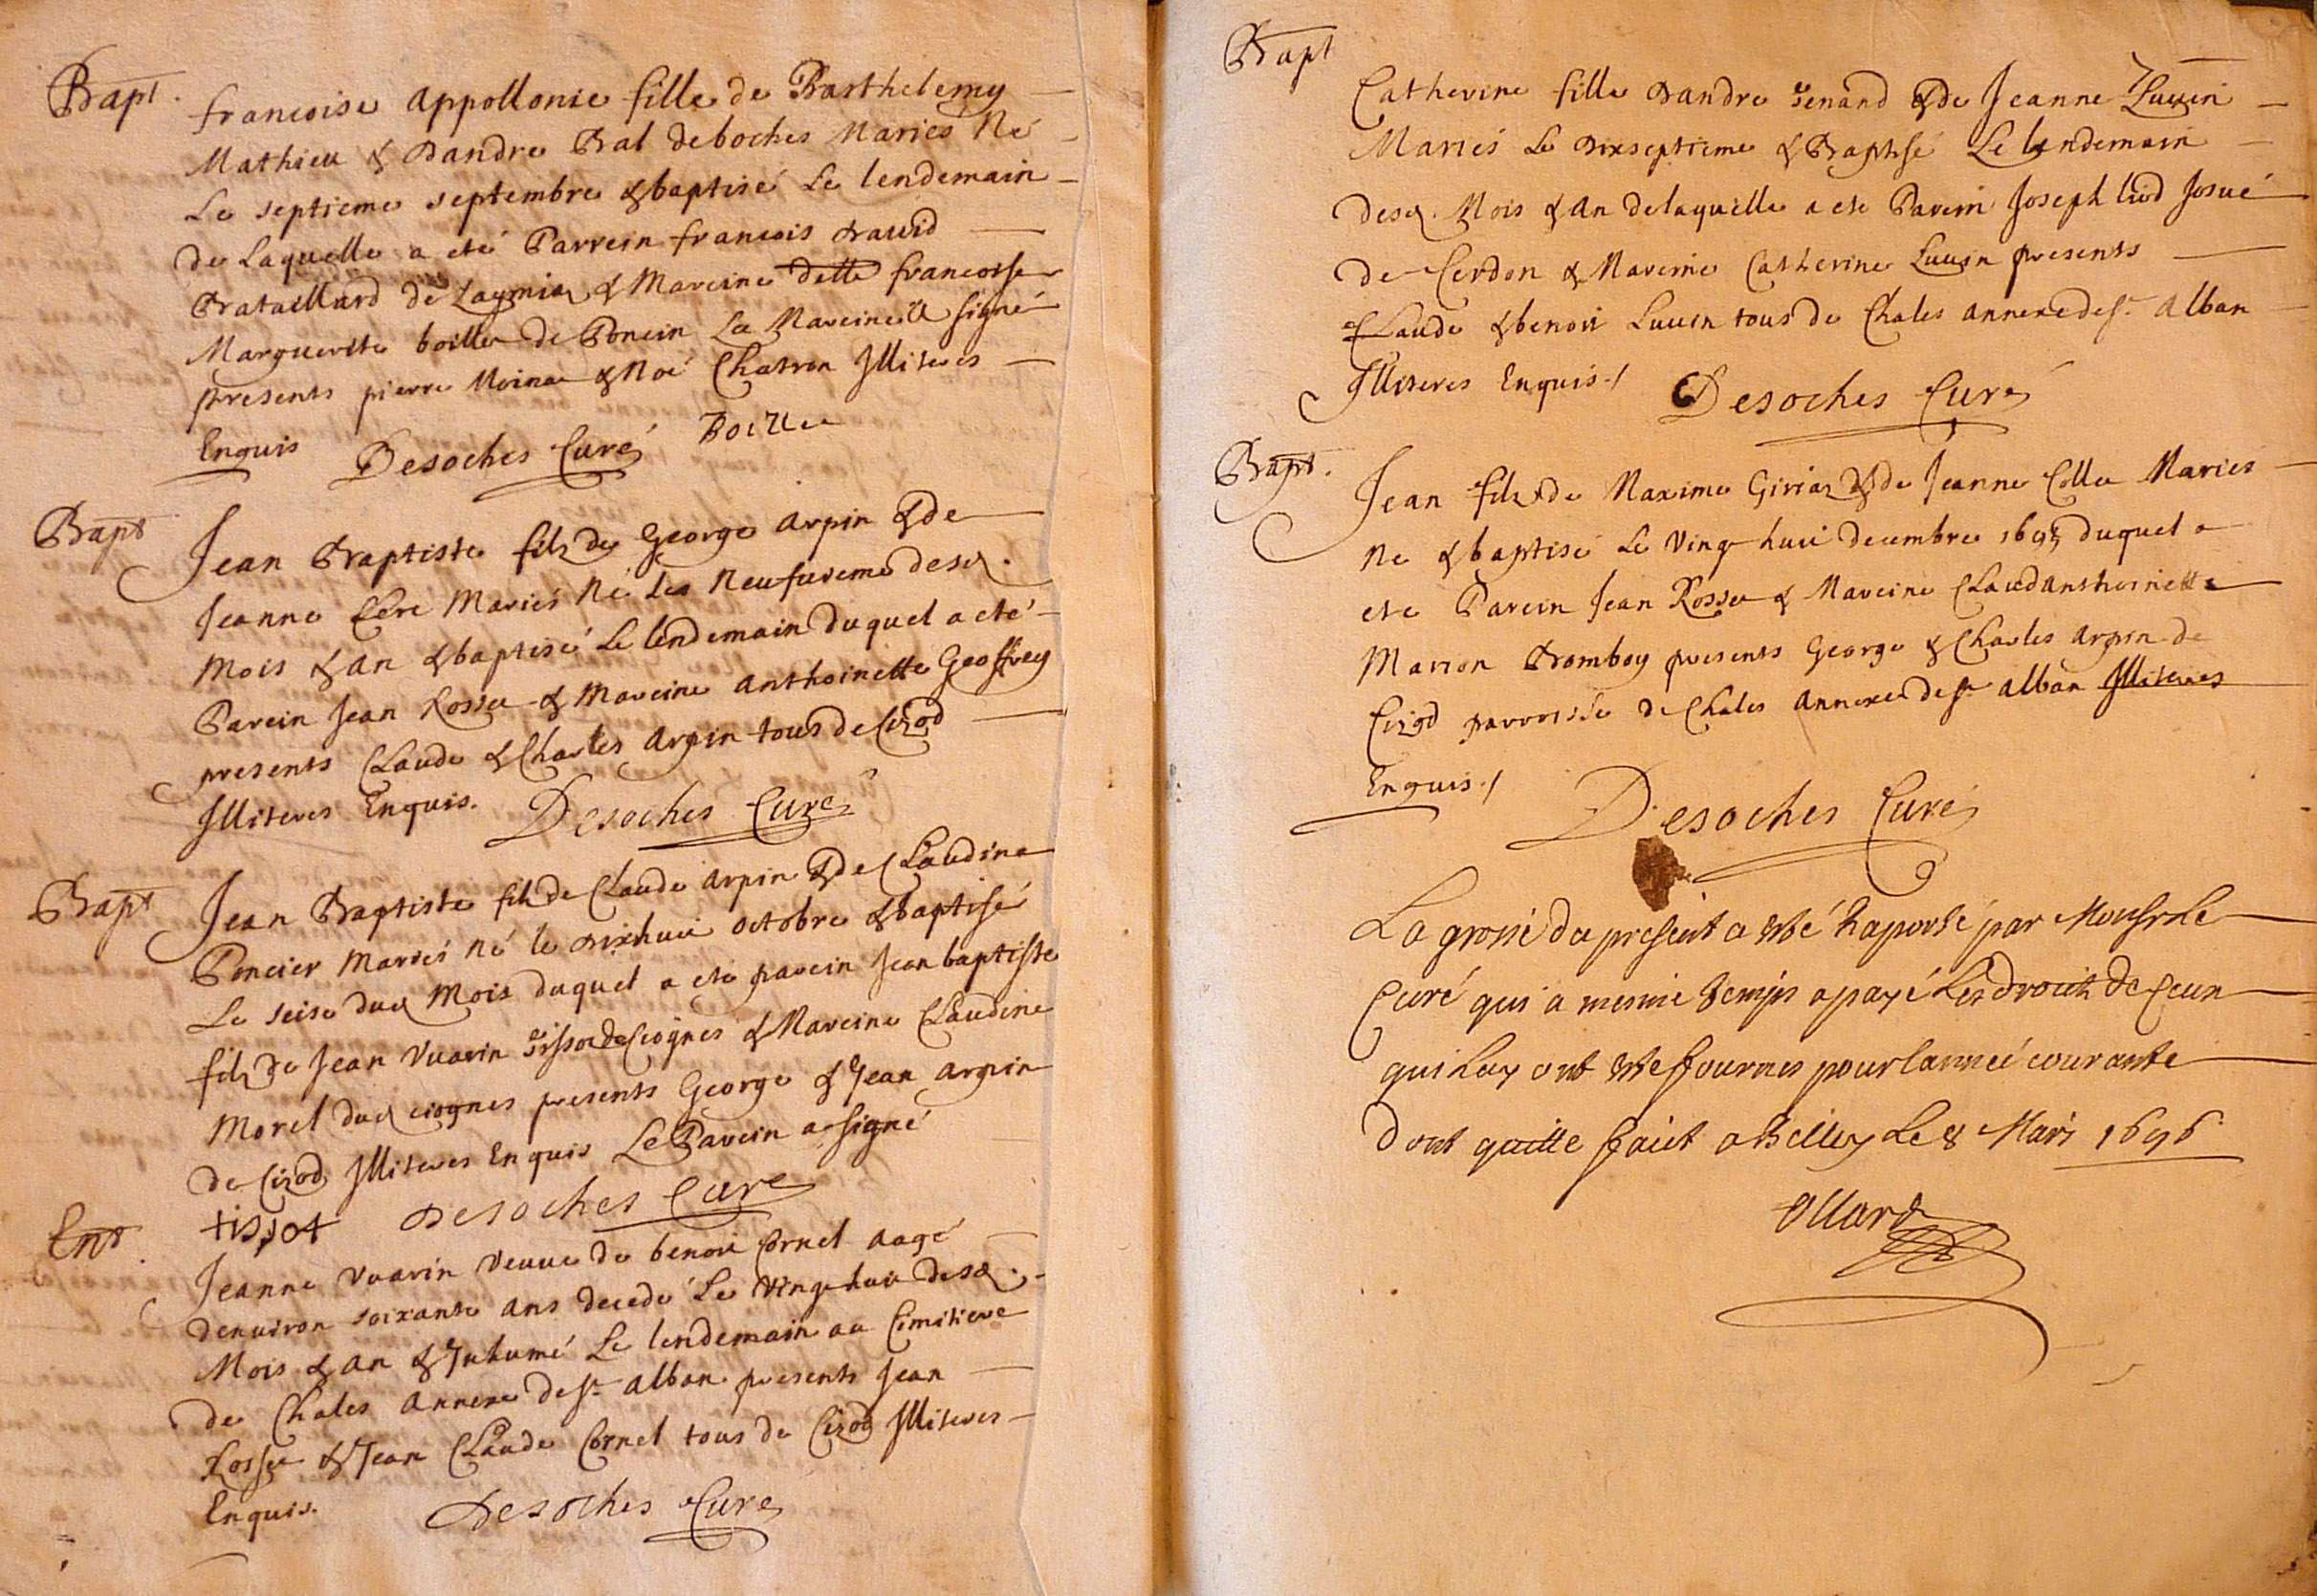 Bapt.
francoise appollonie fille de Barthelemy
Mathieu & Dandre Bal deboches Maries Né
Le septieme septembre & baptisé Le lendemain
de Laquelle a eté Parrein francois david
Bataillard de Lagnia & Mareine dette francoise
Marguerite boille de Poncin La Mareine a signé
presents pierre Moina & Noé Chatron Illiteres
Enquis Desoches Curé Boille
Bapt
Jean Baptiste filz de George arpin & de
Jeanne Mariés Né Le Neufvieme desd.
Mois & an & baptisé Le lendemain duquel a eté
Parein Jean Rosse & Mareine anthoinette Geoffrey
presents Claude & Charles arpin tous de Cizod
Illiteres Enquis. Desoches Curé
Bapt
Jean Baptiste filz de Claude arpin & de Claudina
Poncier Mariés Né le dixhui octobre & baptisé
Le seise dud Mois duquel a ete parein Jean baptiste
filz de Jean Vuarin tissot de Ciognes & Mareine Claudine
Morel dud ciognes presents George & Jean arpin
de Cizod Illiteres Enquis Le Parein a signé
tissot Desoches Curé
Ent
Jeanne Vuarin Veuve de benoi Cornel aagé
denuiron soixante ans decedé Le Vingehui desd.
Mois & an & Inhumé Le lendemain au Cimitiere
de Chales annexe de st alban presents Jean
Rosse & Jean Claude Cornel tous de Cizod Illiteres
Enquis. Desoches Curé
Bapt
Catherine fille Dandre Jenand & de Jeanne Luuin
Mariés Le dixseptieme & Baptisé Le lendemain
desd. Mois & an delaquelle a ete Parein Joseph Josué
de Cerdon & Mareine Catherine Luuin presents
Claude & benoit Luuin tous de Chales annexe de st. alban
Illiteres Enquis./ Desoches Curé
Bapt.
Jean filz de Maxime Giriaz & de Jeanne Colle Maries
Ne & baptisé Le Vinge huit decembre 1695 duquel a
ete Parein Jean Rosse & Mareine Claudanthoinette
Marion Bomboy presents George & Charles arpin de
Cizod parroisse de Chales annexe de st alban Illiteres
Enquis./ Desoches Curé
La grosse du present a esté Raporté par Monsr Le
Curé qui a mesme temps a payé Les droits de Ceux
qui Luy ont esté fournis pour lannée courante
dont quitte fait a Belley Le 8 Mars 1696
Ollard